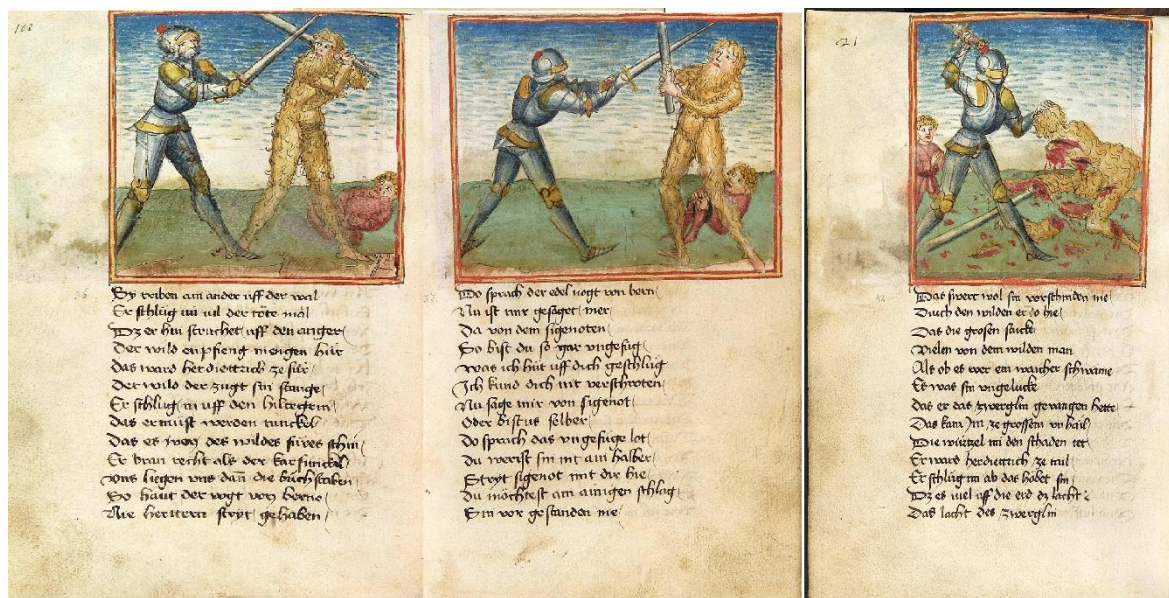 Sy triben ain ander uff der wal
Er schlůg im vil der tôte mal
Dz er hin struchet uff den anger
Der wild enpfieng mengen
das ward her diettrich ze
Der wild der zugt sin stange
Er schlůg in uff den hilt
Das er můst werden tunckel
Das es von des wildes fúres schin
Er bran recht als der karfunckel
Uns liegen uns dan die bůchstaben
So haut der vogt von berne
Nie hertern stryt gehaben
37
Do sprach der edel vogt von bern
Nu ist mir gesaget mer
Da von dem sigenoten
So bist du so gar ungefůg
Was ich hút uff dich geschlůg
Ich kund dich nit verschroten
Nu sage mir von sigenot
Oder bistus selber
Do sprach das ungefůge lot
Du werist sin nit ain halber
Stryt sigenot mit dir hie
Du môchtest am ainigen schlag
Sin vor gestanden nie
Das swert wol sin verschniden nie
Durch den wilden er so hie
Das die grosen
Vielen von dem wilden man
Als ob es wer ein waicher schwame
Es was sin ungelúcke
Das er das zwerglin gevangen hette
Das kam im ze grossem unhail
Die wúrtzel im den schaden tet
Er ward her diettrich ze tail
Er schlůg im ab das hobet sin
Dz es viel uff die erd dz lacht
Das lacht des zwerglin